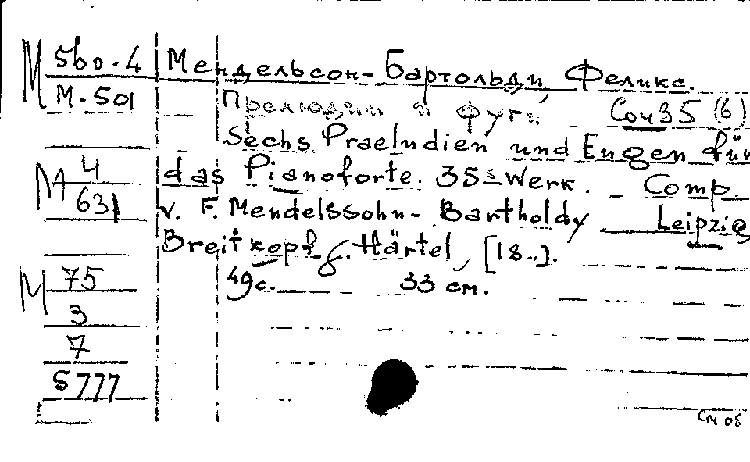 М 560-4 Мендельсон-Бартольди, Феликс.
М-501 Прелюдии и фуги Соч 35 (6)
Sechs Praeludien und Fugen für
М 4 das Pianoforte. 35s Werk. – Comp.
631 v. F. Mendelssohn-Bartholdy Leipzig
Breitkopf &. Härtel, [18..].
М 75 49 с. 33 см.
3
7
S777
см об